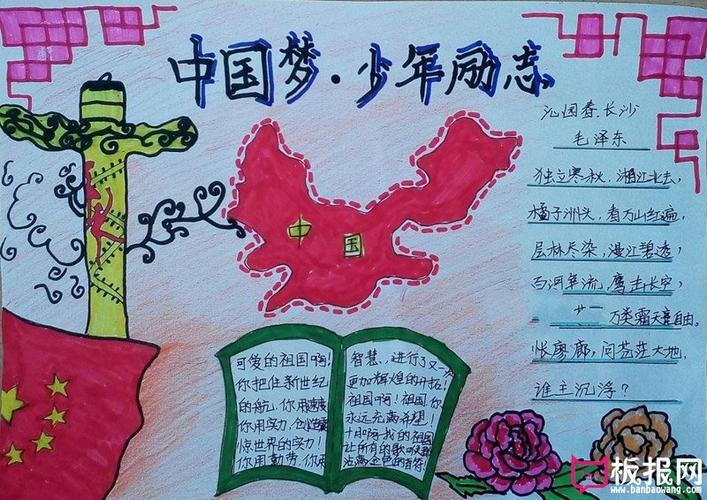 中国梦·少年励志
沁园春.长沙
毛泽东
独立寒秋,湘江北去,
橘子洲头,看万山红遍,
层林尽染,漫江碧透,
百河争流,鹰击长空,
万类霜天竞自由.
怅廖廓,问苍茫大地,
谁主沉浮?
中国
可爱的祖国啊!
你把住新世纪
的舵,你用速度
你用实力,
惊世界的实力!
你用勤劳,你用
智慧,进行了又一次
更加辉煌的开拓!
祖国啊!祖国,你
永远充满希望!
十月啊,我的祖国
让所有的歌
板报网
www.banbaowang.com